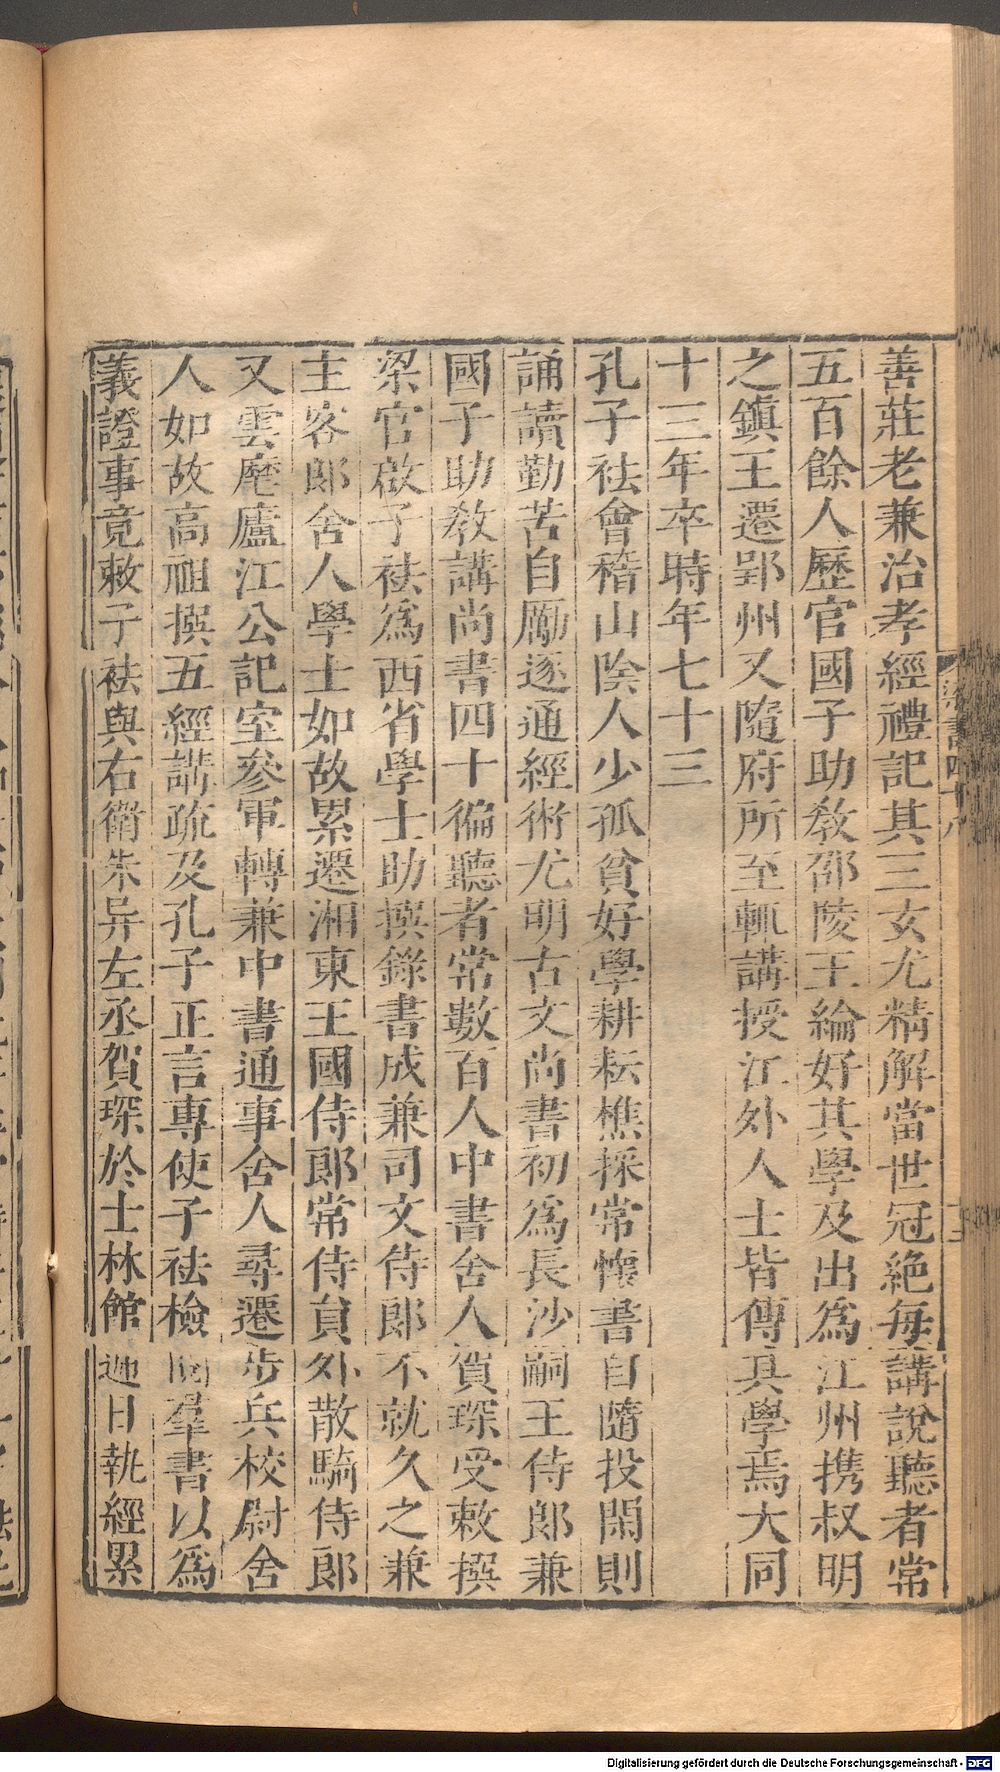 善莊老兼治孝經禮記其三玄尤精解當世冠絶每講說聽者常
五百餘人歷官國子助敎邵陵王綸好其學及出爲江州携叔明
之鎮王遷郢州又隨府所至輒講授江外人士皆傳其學焉大同
十三年卒時年七十三
孔子祛會稽山陰人少孤貧好學耕耘樵採常懷書自隨投閑則
誦讀勤苦自勵遂通經術尤明古文尚書初爲長沙嗣王侍郞兼
國子助敎講尚書四十徧聽者常數百人中書舍人賀琛受敕撰
梁官啟子祛爲西省學士助撰錄書成兼司文侍郞不就久之兼
主客郞舍人學士如故累遷湘東王國侍郞常侍員外散騎侍郞
又雲麾廬江公記室參軍轉兼中書通事舍人尋遷步兵校尉舍
人如故高祖撰五經講疏及孔子正言專使子祛檢閱羣書以爲
義證事竟敕子祛與右衛朱异左丞賀琛於士林館遞日執經累
梁書四十八
十三
Digitalisierung gefördert durch die Deutsche Forschungsgemeinschaft - DFG